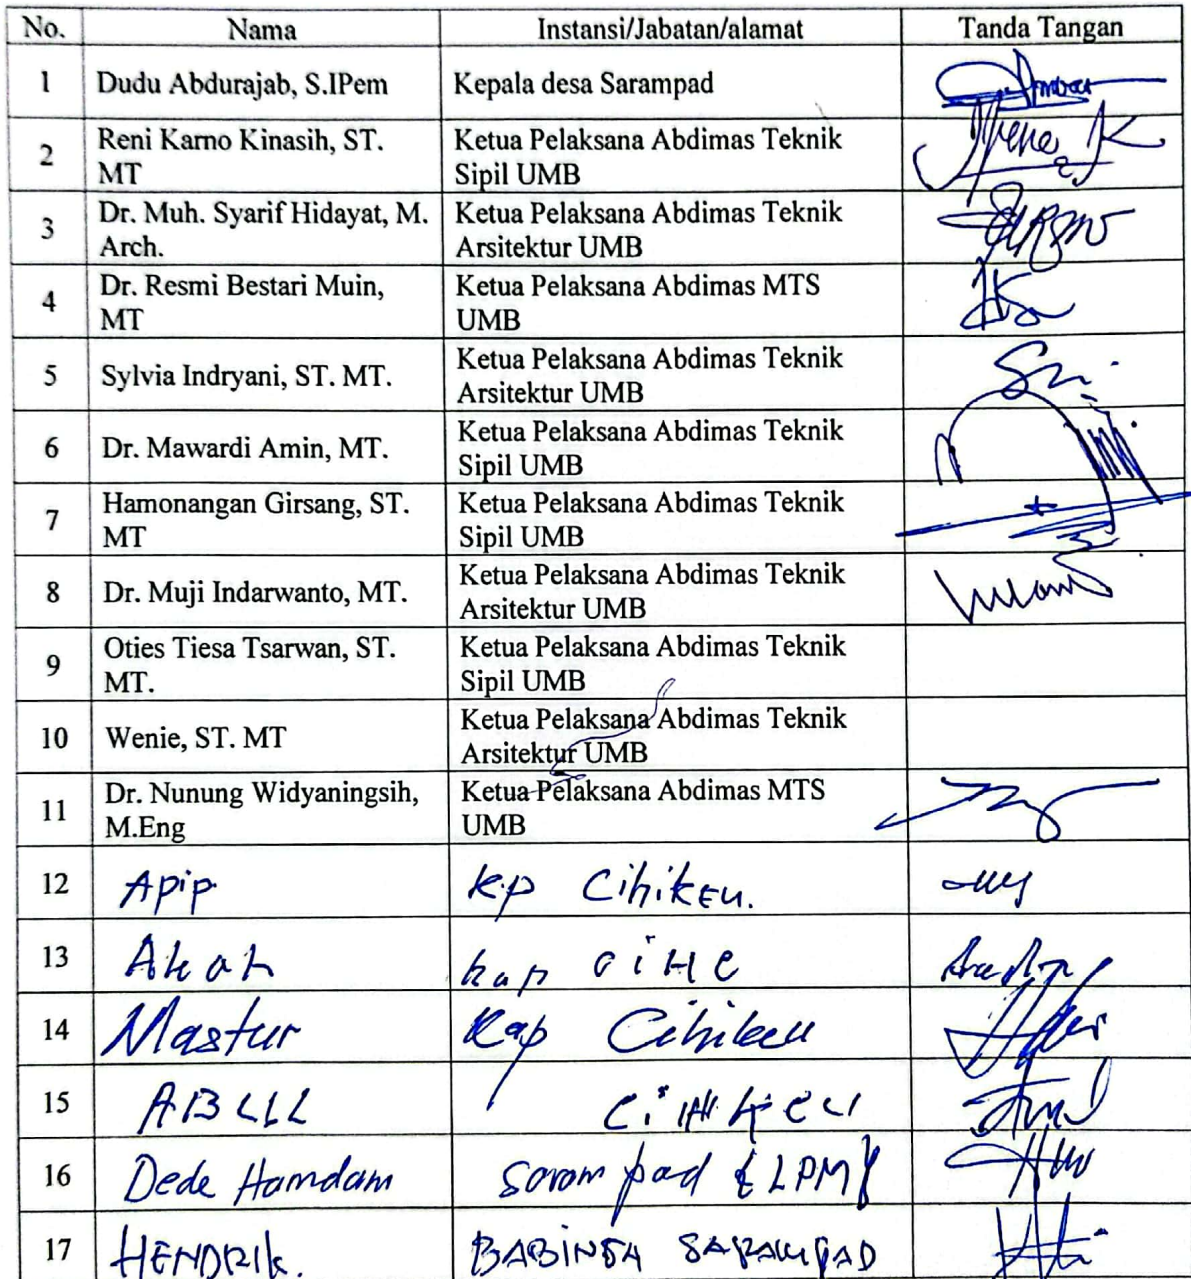 No. Nama Instansi/Jabatan/alamat Tanda Tangan
1 Dudu Abdurajab, S.IPem Kepala desa Sarampad
2 Reni Karno Kinasih, ST. MT Ketua Pelaksana Abdimas Teknik Sipil UMB
3 Dr. Muh. Syarif Hidayat, M. Arch. Ketua Pelaksana Abdimas Teknik Arsitektur UMB
4 Dr. Resmi Bestari Muin, MT Ketua Pelaksana Abdimas MTS UMB
5 Sylvia Indryani, ST. MT. Ketua Pelaksana Abdimas Teknik Arsitektur UMB
6 Dr. Mawardi Amin, MT. Ketua Pelaksana Abdimas Teknik Sipil UMB
7 Hamonangan Girsang, ST. MT Ketua Pelaksana Abdimas Teknik Sipil UMB
8 Dr. Muji Indarwanto, MT. Ketua Pelaksana Abdimas Teknik Arsitektur UMB
9 Oties Tiesa Tsarwan, ST. MT. Ketua Pelaksana Abdimas Teknik Sipil UMB
10 Wenie, ST. MT Ketua Pelaksana Abdimas Teknik Arsitektur UMB
11 Dr. Nunung Widyaningsih, M.Eng Ketua Pelaksana Abdimas MTS UMB
12 Apip kp Cihikeu.
13 kap
14 Mastur Kap Cihikeu
15
16 Dede Hamdam Sarampad (LPM)
17 HENDRIK. BABINSA SARAMPAD